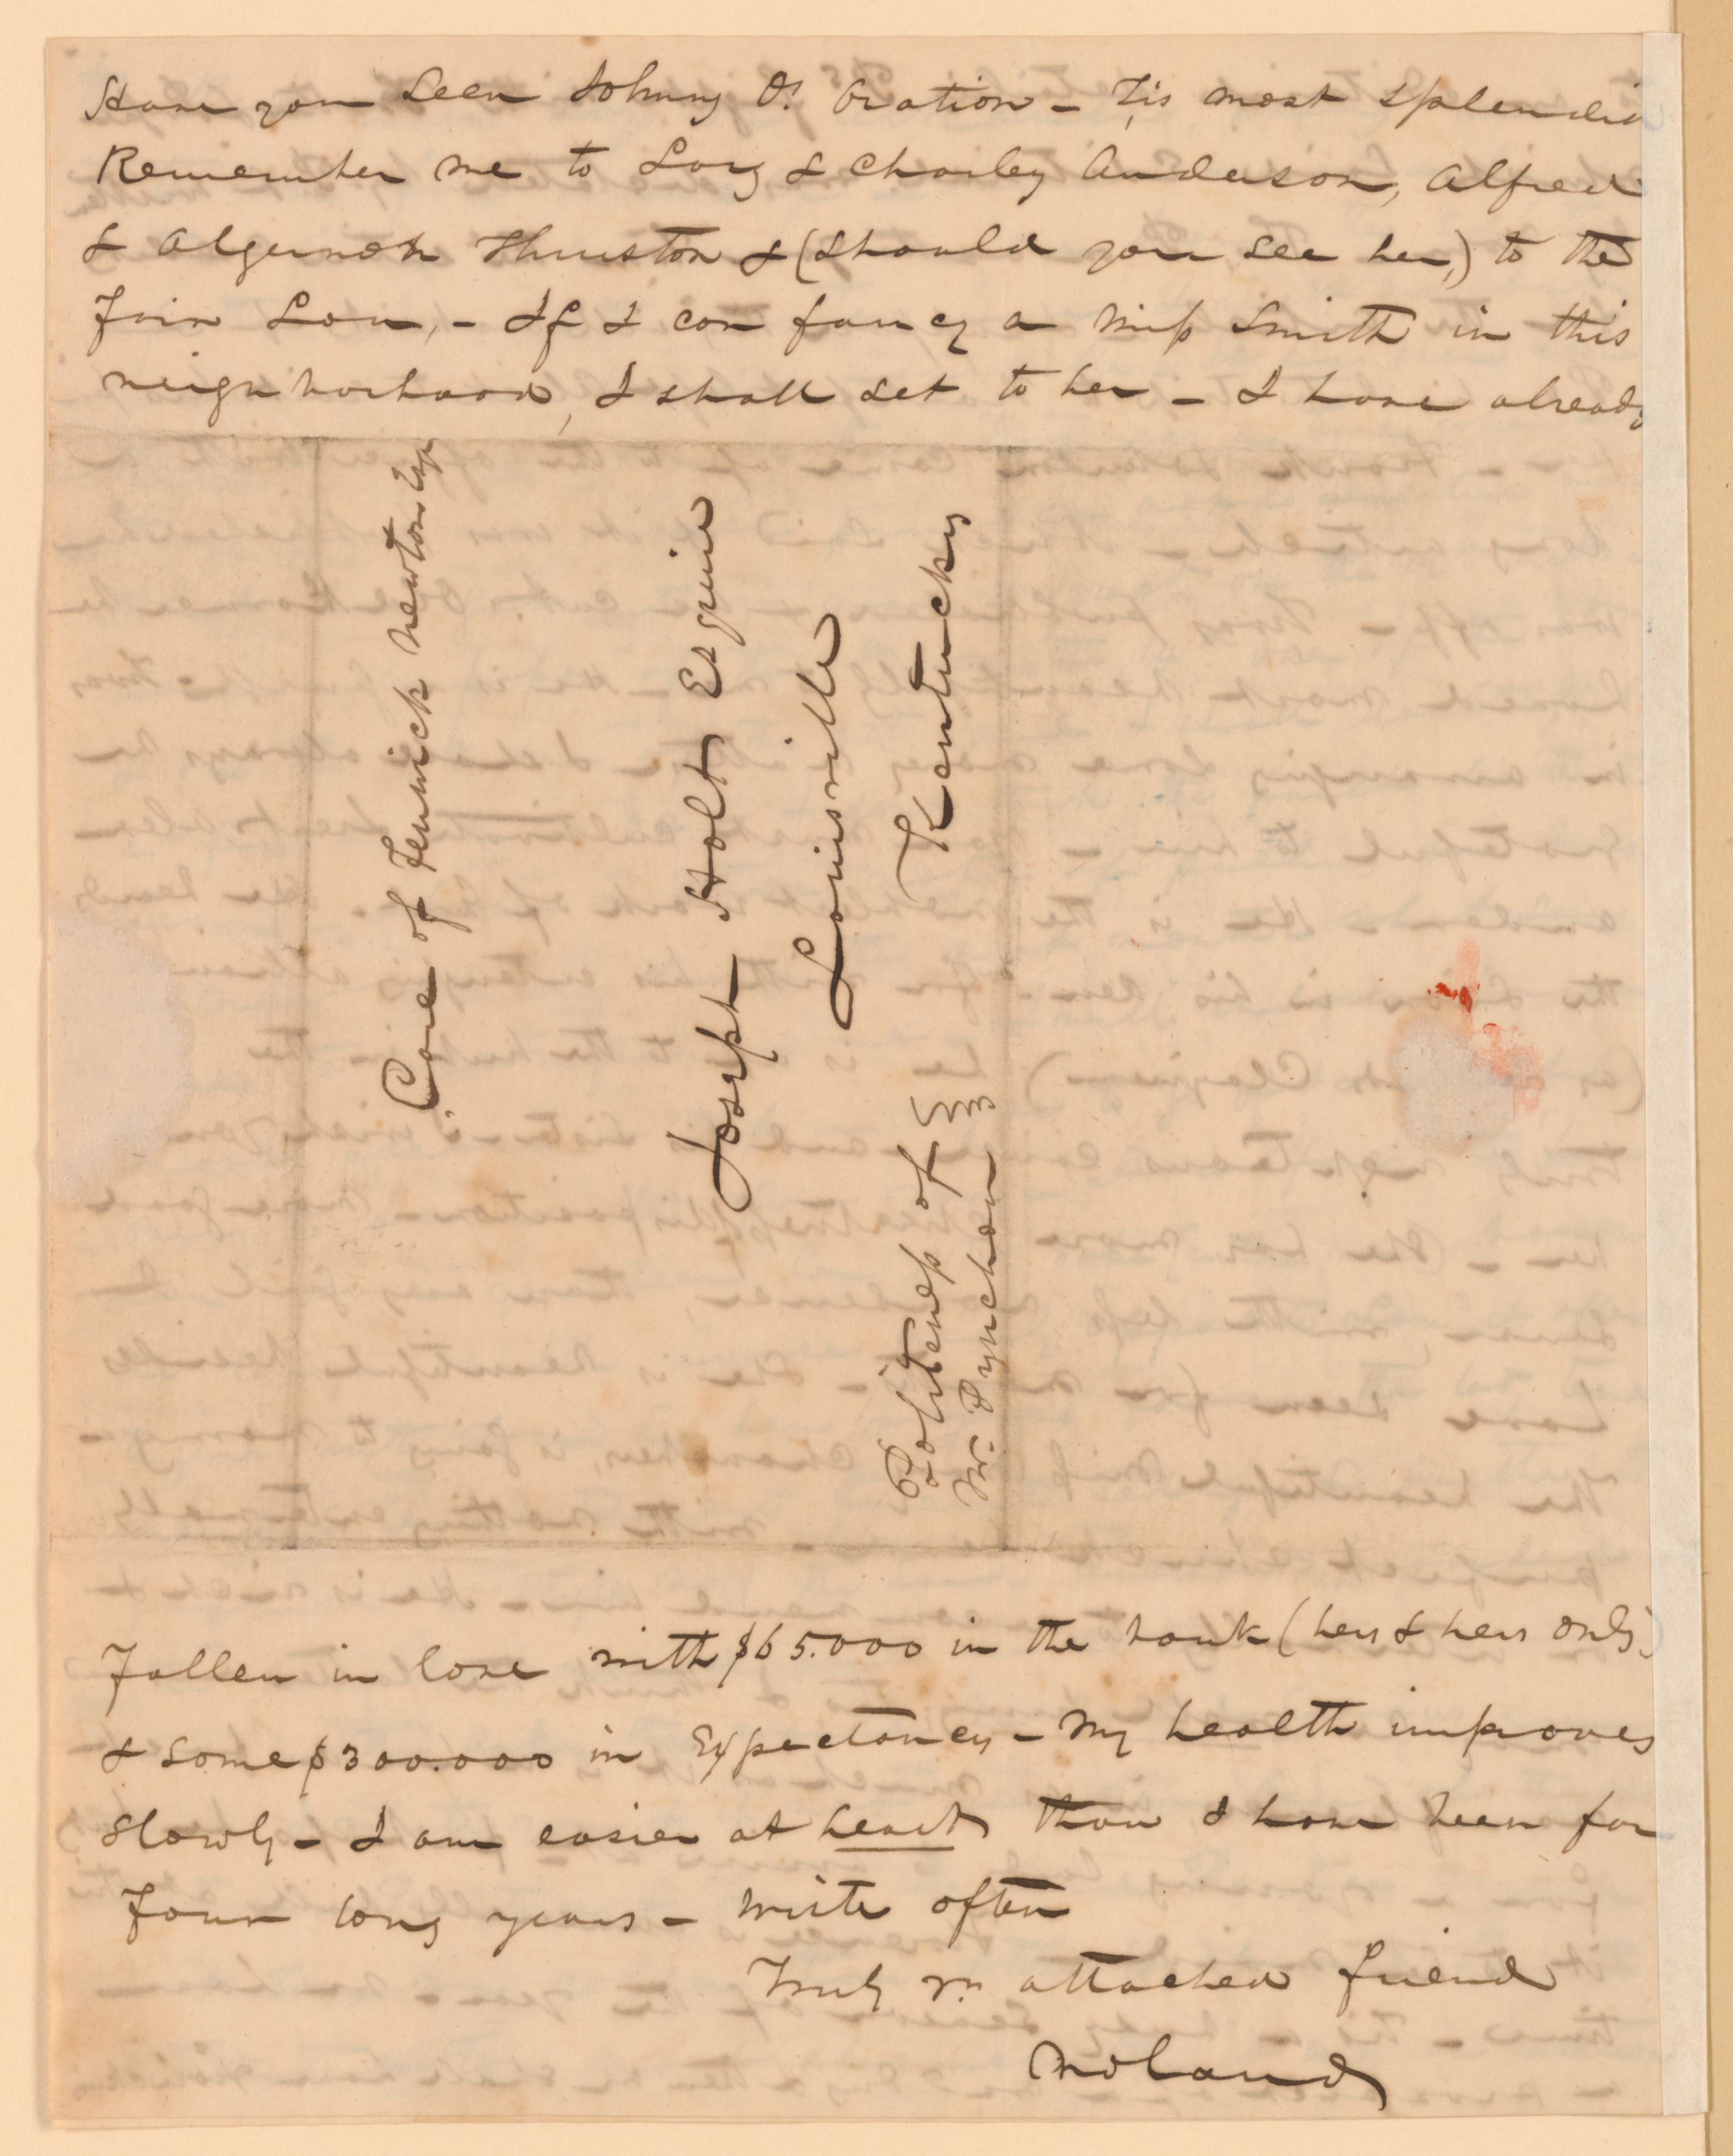 Have you seen Johnny O's Oration – Tis most splendid
Remember me to Larz & Charley Anderson, Alfred
& Algernon Thruston & (should you see her,) to the
Fair Lou, – If I can fancy a Miss Smith in this
neighborhood, I shall set to her – I have already
Care of Fenwick Newton Esqr
Joseph Holt Esquire
Louisville
Kentucky
Politeness of
Mr. Pynchon
Fallen in love with $65.000 in the bank (hers & hers only)
& some $300.000 in Expectancy – My health improves
slowly – I am easier at heart than I have been for
Four long years – Write often
Truly yr. attached friend
Noland